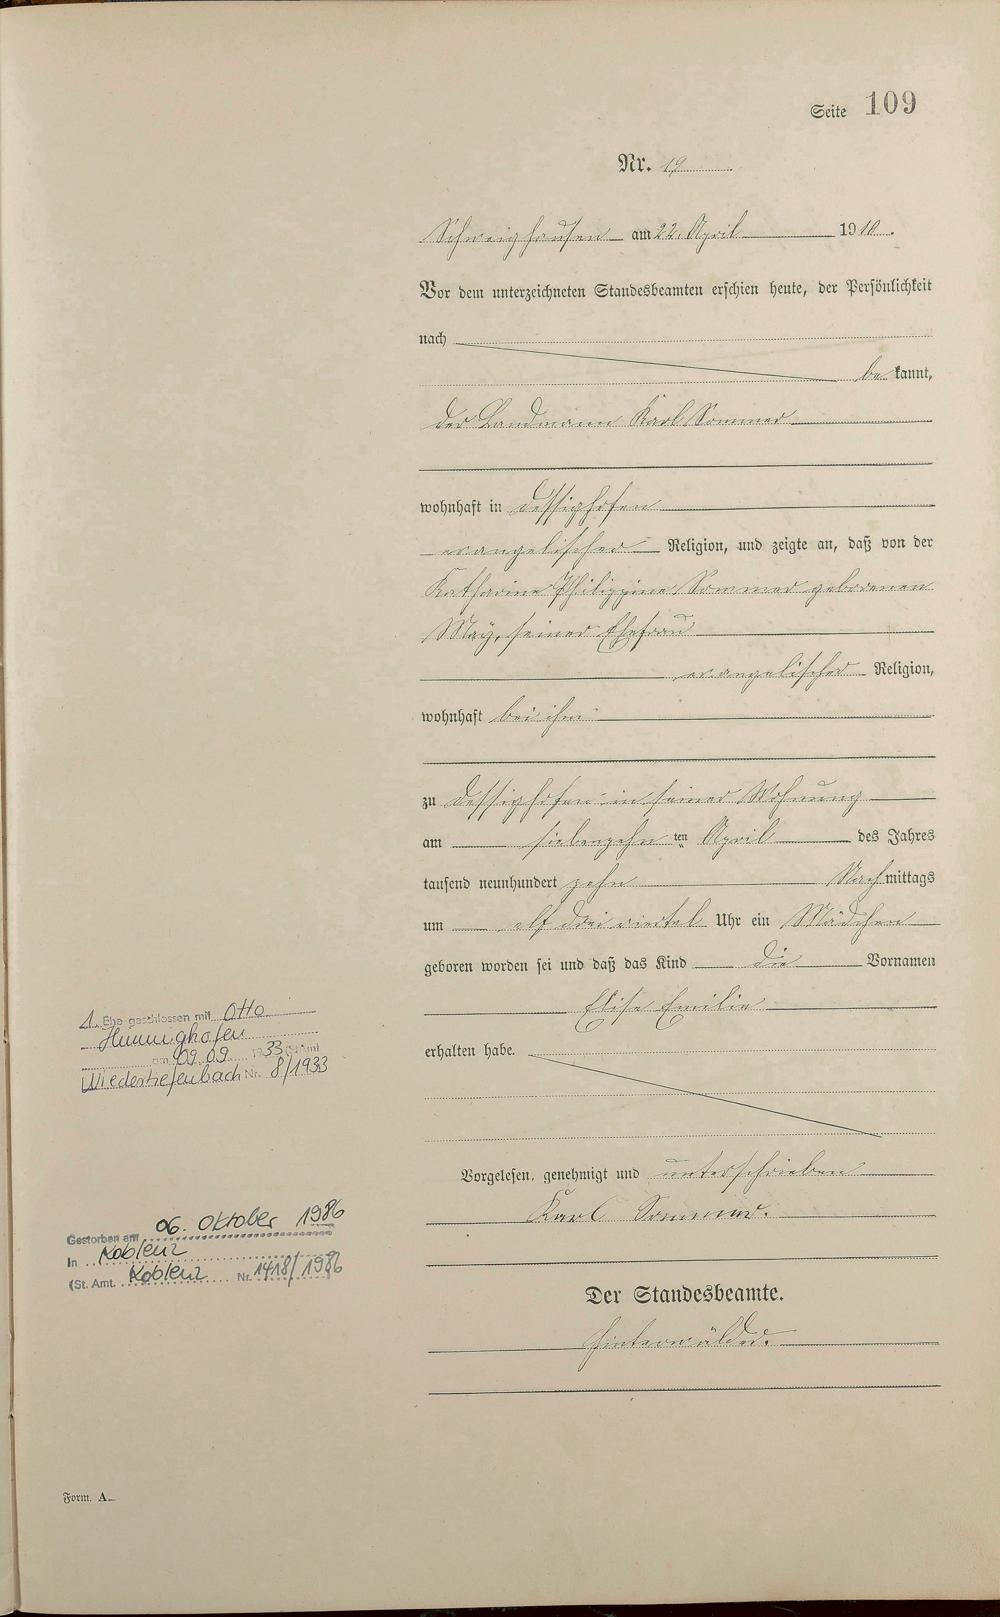 Seite 109
Nr. 19
Schweighausen am 22. April 1910.
Vor dem unterzeichneten Standesbeamten erschien heute, der Persönlichkeit
nach
be kannt,
der Landmann Karl Sommer
wohnhaft in Dessighofen
evangelischer Religion, und zeigte an, daß von der
Katharine Philippine Sommer geborenen
May, seiner Ehefrau
evangelischer Religion,
wohnhaft bei ihm
zu Dessighofen in seiner Wohnung
am siebenzehn ten April des Jahres
tausend neunhundert zehn Nachmittags
um elf drei viertel Uhr ein Mädchen
geboren worden sei und daß das Kind die Vornamen
Elise Emilie
erhalten habe.
Vorgelesen, genehmigt und unterschrieben
Karl Sommer.
Der Standesbeamte.
Hinterwälder.
1. Ehe geschlossen mit Otto
am 09.09. 1933 (St.Amt
Niedertiefenbach Nr. 8/1933
Gestorben am 06. Oktober 1986
In Koblenz
(St. Amt. Koblenz Nr. 1418/1986
Form. A.